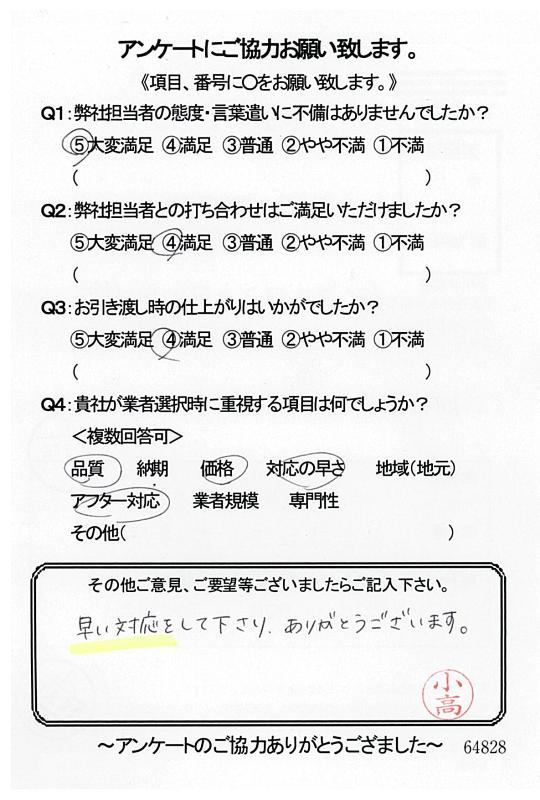 アンケートにご協力お願い致します。
《項目、番号に〇をお願い致します。》
Q1：弊社担当者の態度・言葉遣いに不備はありませんでしたか？
⑤大変満足 ④満足 ③普通 ②やや不満 ①不満
( )
Q2：弊社担当者との打ち合わせはご満足いただけましたか？
⑤大変満足 ④満足 ③普通 ②やや不満 ①不満
( )
Q3：お引き渡し時の仕上がりはいかがでしたか？
⑤大変満足 ④満足 ③普通 ②やや不満 ①不満
( )
Q4：貴社が業者選択時に重視する項目は何でしょうか？
＜複数回答可＞
品質 納期 価格 対応の早さ 地域（地元）
アフター対応 業者規模 専門性
その他( )
その他ご意見、ご要望等ございましたらご記入下さい。
早い対応をして下さり、ありがとうございます。
小高
～アンケートのご協力ありがとうござました～ 64828